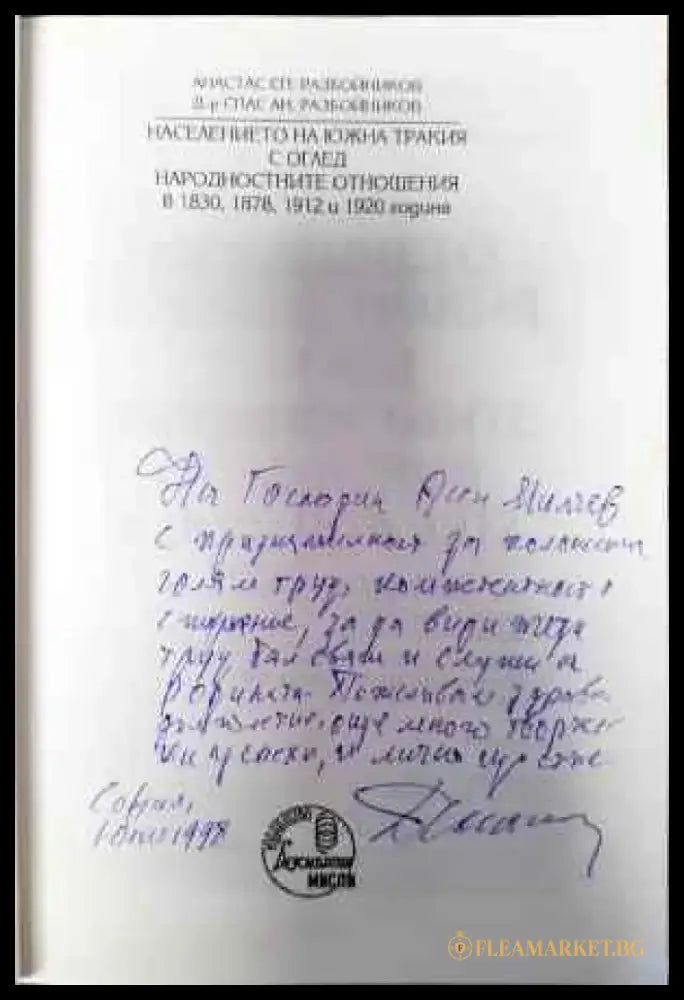 АНАСТАС СП. РАЗБОЙНИКОВ
Д-р СПАС АН. РАЗБОЙНИКОВ
НАСЕЛЕНИЕТО НА ЮЖНА ТРАКИЯ
С ОГЛЕД
НАРОДНОСТНИТЕ ОТНОШЕНИЯ
В 1830, 1878, 1912 и 1920 година
На Господин Асен Милчев
с признателност за положения
голям труд, компетентност и
старание, за да види този
труд бял свят и служи на
Родината. Пожелавам здраве
дълголетие, още много творчес
ки успехи, и лично щастие
София,
1998
ИЗДАТЕЛСТВО
МИСЪЛ
FLEAMARKET.BG